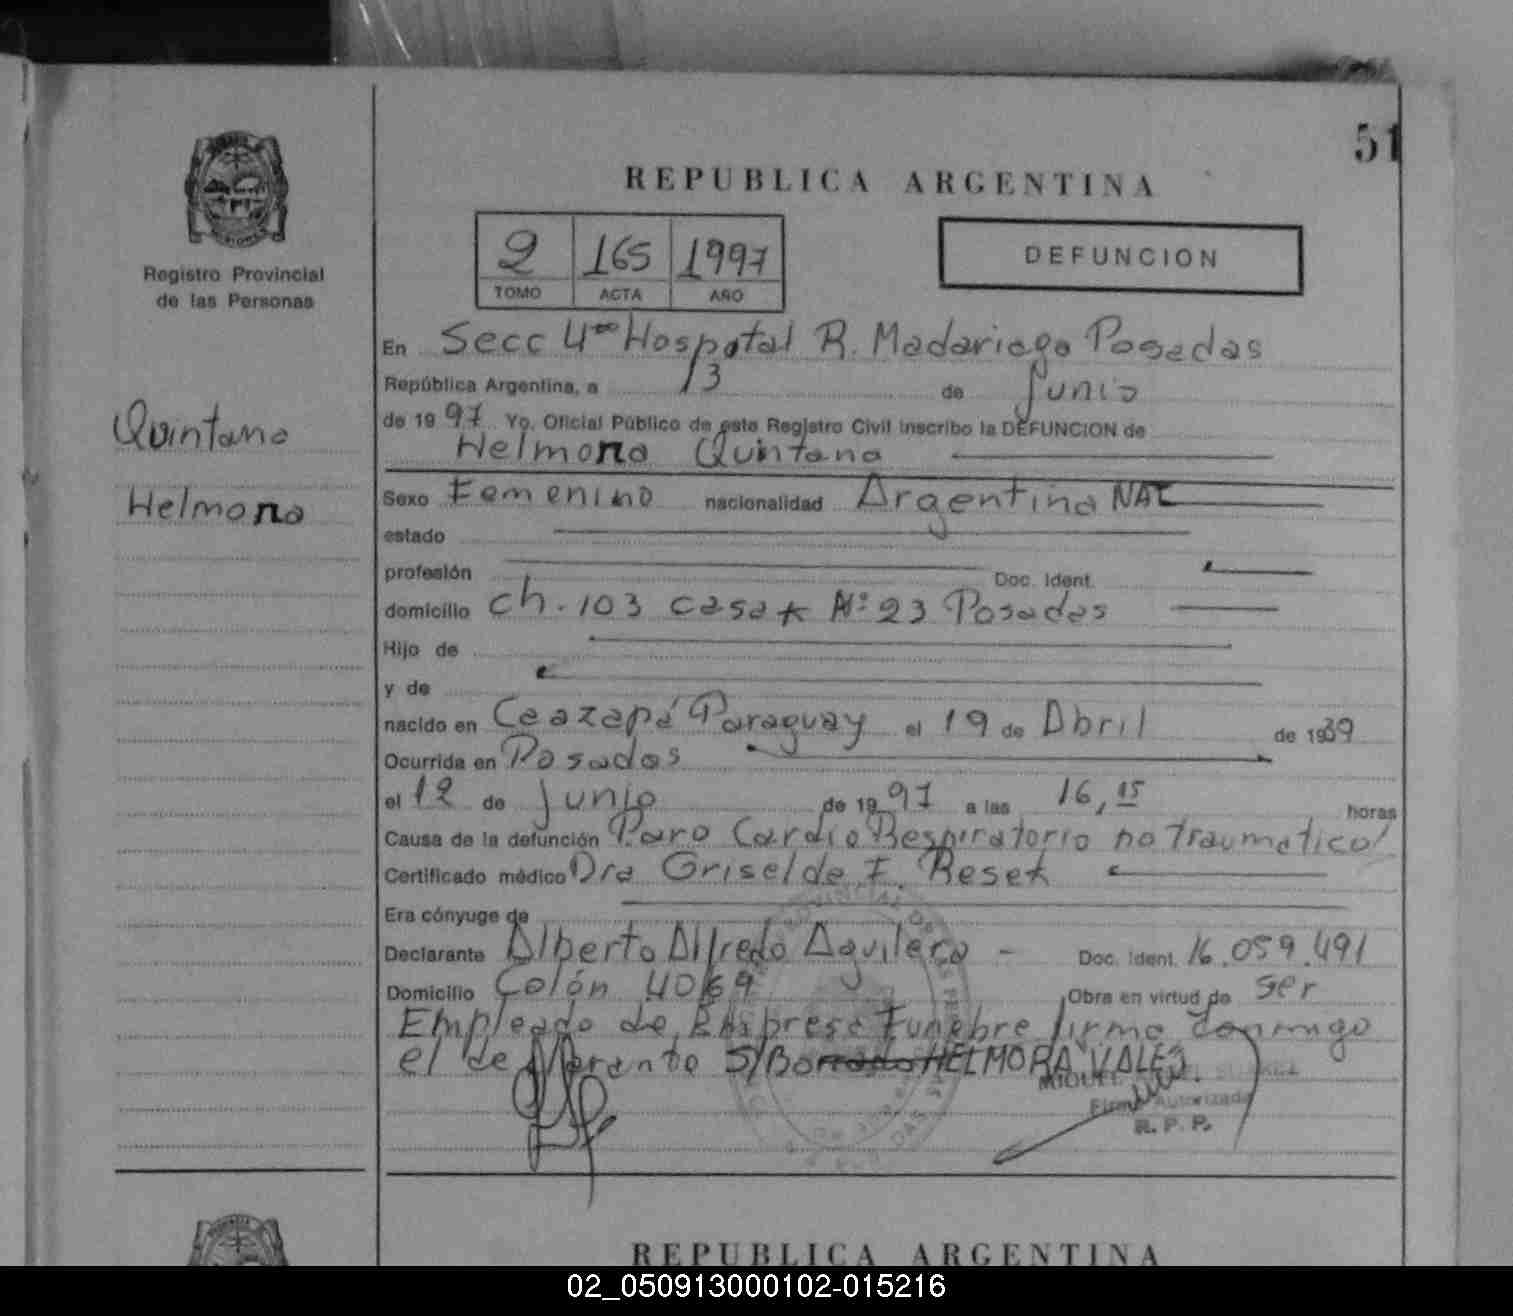 51
REPUBLICA ARGENTINA
2 165 1997
TOMO ACTA AÑO
DEFUNCION
Registro Provincial
de las Personas
Quintana
Helmora
En Secc 4ta Hospotal R. Madariaga Posadas
República Argentina, a 13 de Junio
de 1997 Yo, Oficial Público de este Registro Civil inscribo la DEFUNCION de
Helmora Quintana
Sexo Femenino nacionalidad Argentina NAT
estado
profesión Doc. Ident.
domicilio Ch. 103 casa Nº 23 Posadas
Hijo de
y de
nacido en Caazapá Paraguay el 19 de Abril de 1939
Ocurrida en Posadas
el 12 de Junio de 1997 a las 16,15 horas
Causa de la defunción Paro Cardio Respiratorio no Traumatico
Certificado médico Dra Griselda E. Resek
Era cónyuge de
Declarante Alberto Alfredo Aguilera - Doc. Ident. 16.059.491
Domicilio Colón 4069 Obra en virtud de Ser
Empleado de Empresa Funebre firma conmigo
el declarante S/Borrado HELMORA VALE
MIGUEL SUAREZ
Firma Autorizada
R. P. P.
REPUBLICA ARGENTINA
02_050913000102-015216